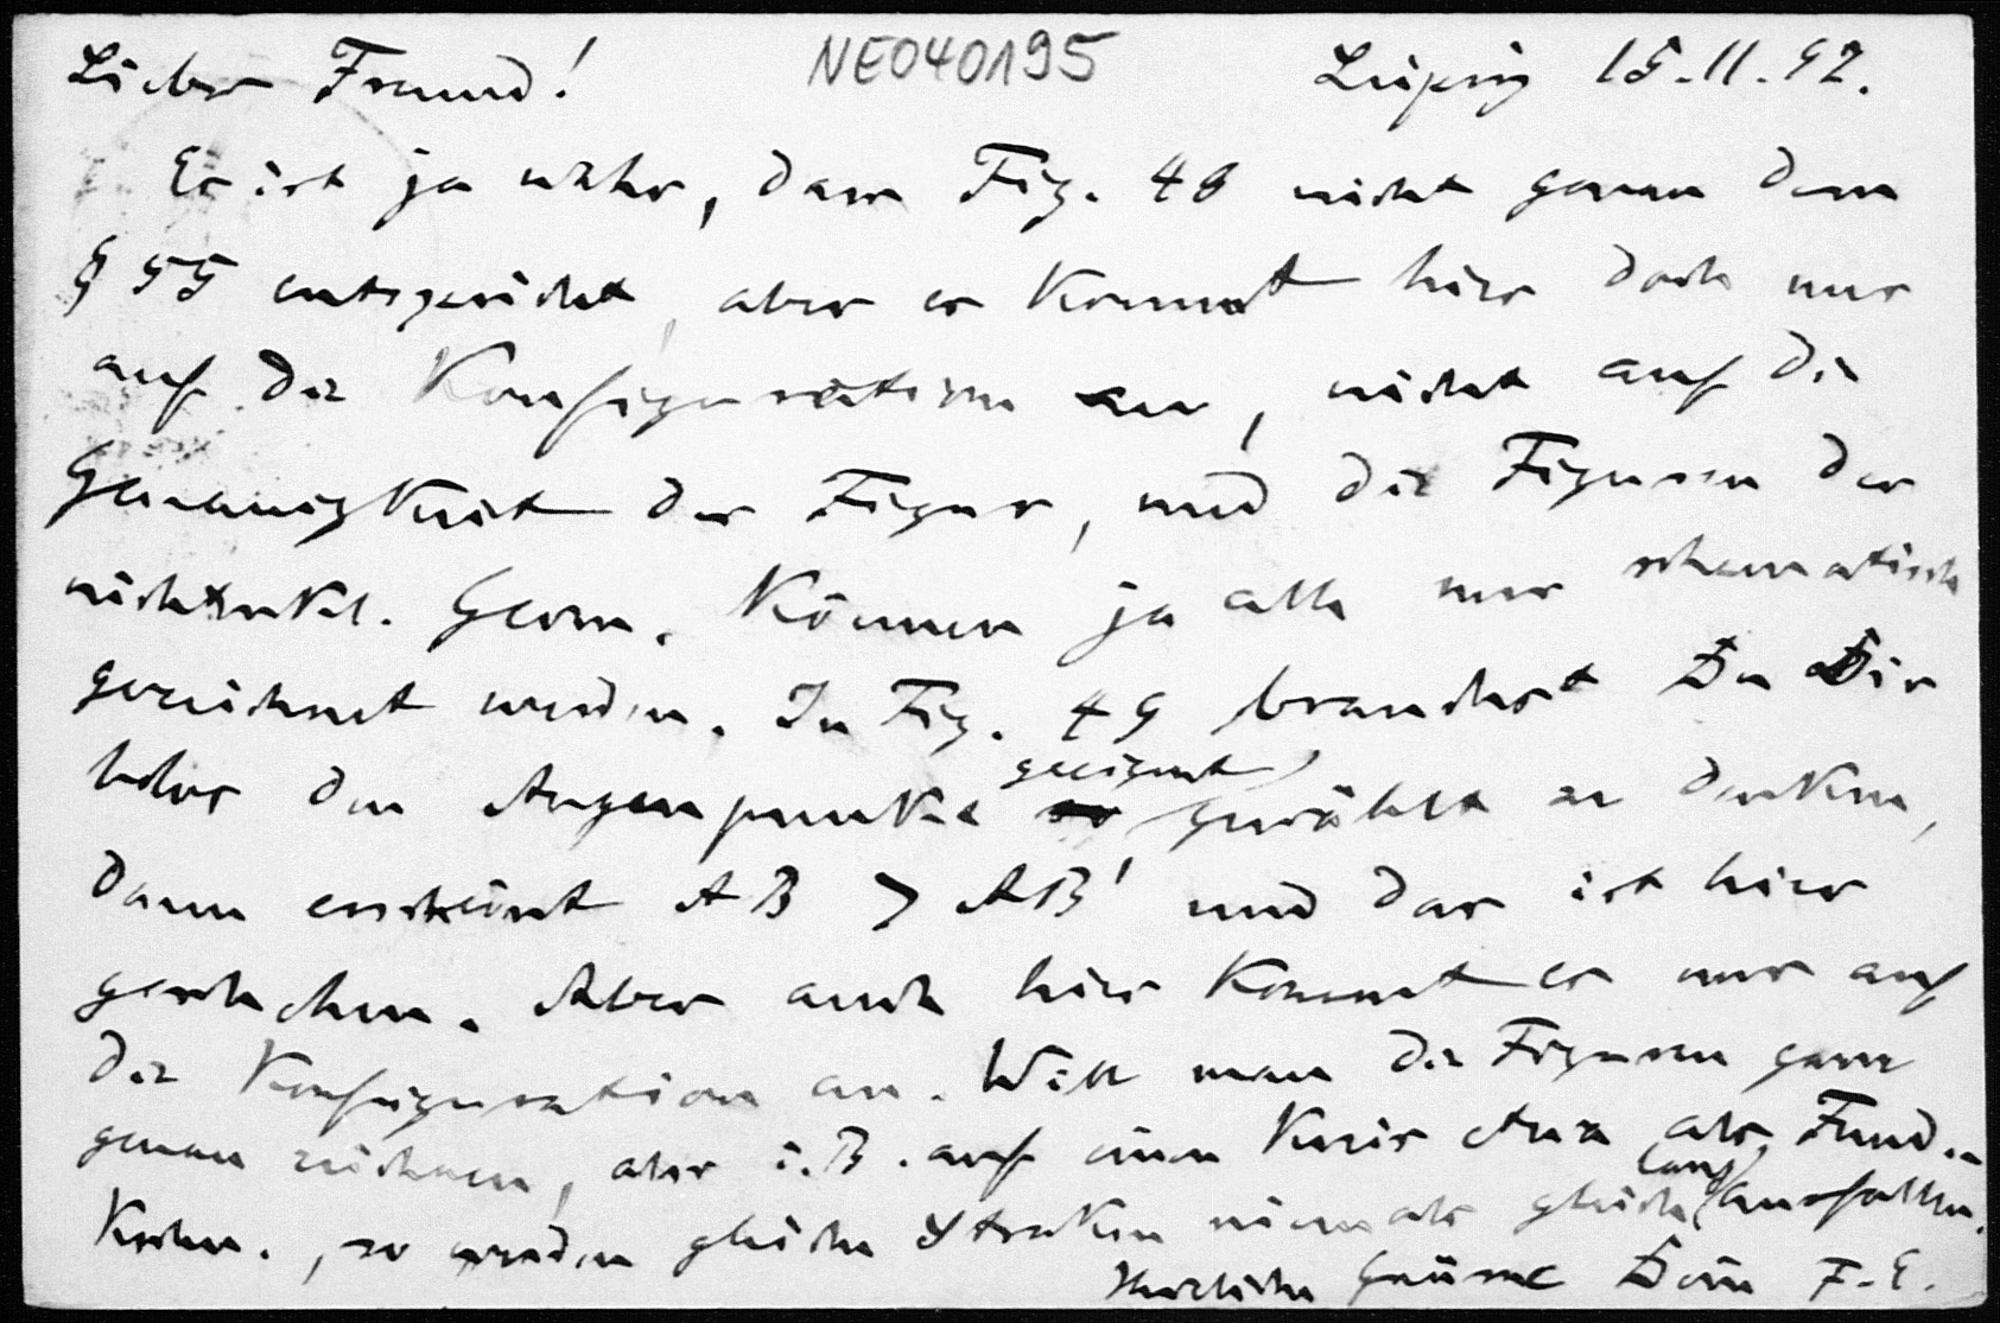 Lieber Freund! NE040195 Leipzig 15.11.92.
Es ist ja wahr, dass Fig. 48 nicht genau dem
§ 55 entspricht, aber es kommt hier doch nur
auf die Konfiguration an, nicht auf die
Genauigkeit der Figur, und die Figuren der
nichteukl. Geom. können ja alle nur schematisch
gezeichnet werden. In Fig. 49 brauchst Du Dir
bloss den Augenpunkt geeignet gewählt zu denken,
dann erscheint AB > AB' und das ist hier
geschehen. Aber auch hier kommt es nur auf
die Konfiguration an. Will man die Figuren ganz
genau zeichnen, also z.B. auf einen Kreis als Fund.
so werden gleiche Strecken niemals gleich lang ausfallen.
Herzliche Grüsse Dein F. E.